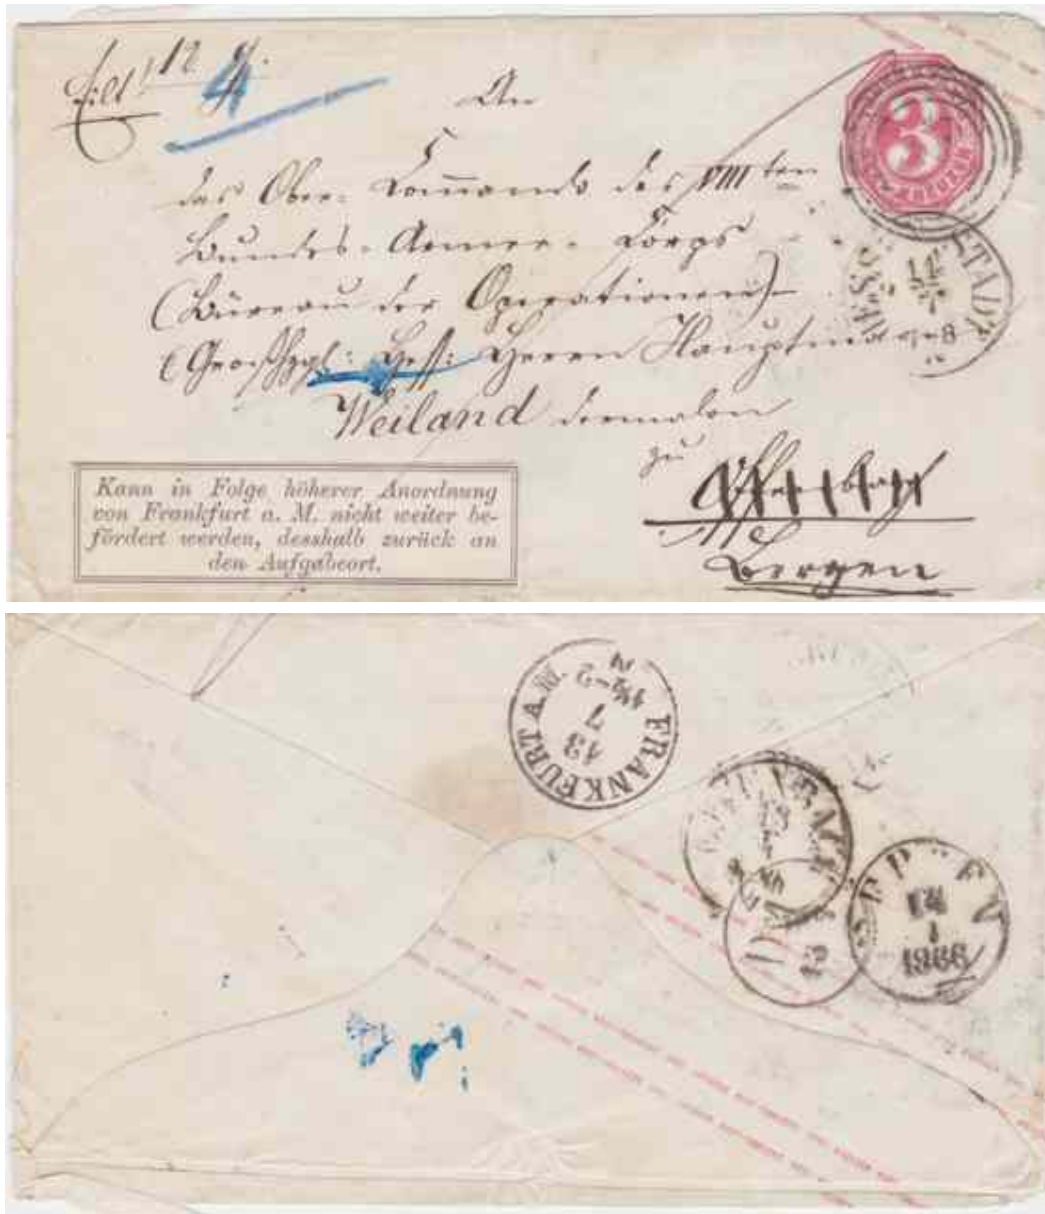 Eilt! 12 4
An
3
das Ober-Commando des VIIIten
Bundes-Armee-Corps
(Büreau der Operationen)
STADT
(Großhzgl: Hess: Herrn Hauptm
Weiland dermalen
zu
Offenbach
Bergen
Kann in Folge höherer Anordnung
von Frankfurt a. M. nicht weiter be-
fördert werden, desshalb zurück an
den Aufgabeort.
FRANKFURT A. M.
13
7
OFFENBACH
13
1866